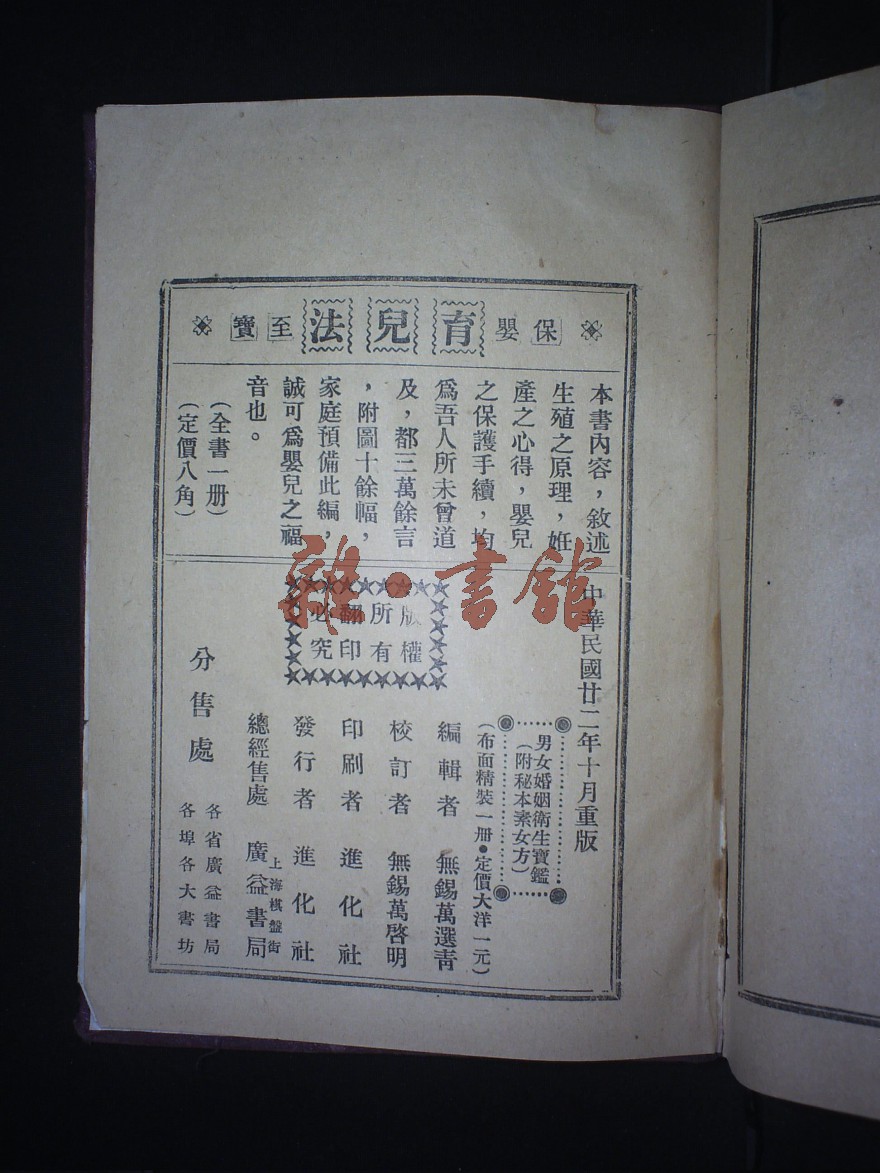 保嬰育兒法至寶
本書內容，敘述
生殖之原理，姙
產之心得，嬰兒
之保護手續，均
爲吾人所未曾道
及，都三萬餘言
，附圖十餘幅，
家庭預備此編，
誠可爲嬰兒之福
音也。
（全書一册）
（定價八角）
中華民國廿二年十月重版
男女婚姻衛生寶鑑
（附秘本素女方）
（布面精裝一册•定價大洋一元）
版權
所有
翻印
必究
編輯者 無錫萬選青
校訂者 無錫萬啓明
印刷者 進化社
發行者 進化社
上海棋盤街
總經售處 廣益書局
分售處
各省廣益書局
各埠各大書坊
雜·書館